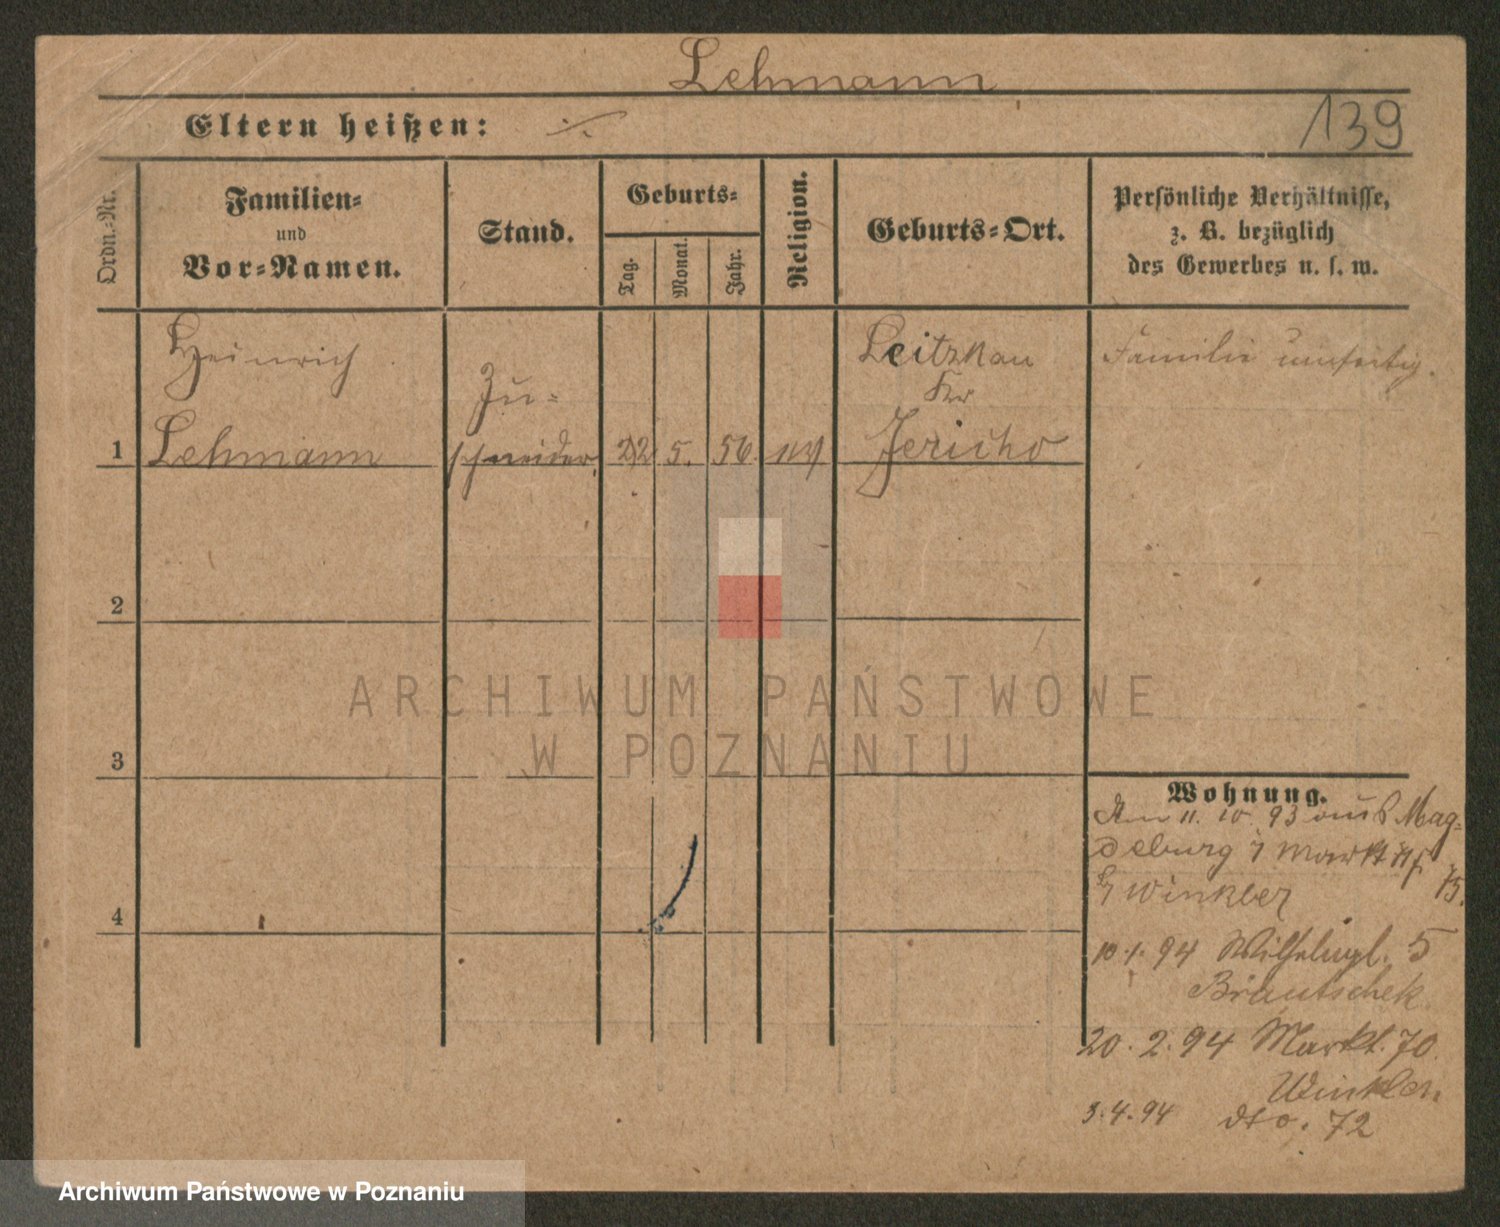 Lehmann
139
Eltern heißen: ·/·
Ordn.-Nr.
Familien-
und
Vor-Namen.
Stand.
Geburts-
Tag.
Monat.
Jahr.
Religion.
Geburts-Ort.
Persönliche Verhältnisse,
z. B. bezüglich
des Gewerbes u. s. w.
Heinrich
Leitzkau
Familie umseitig.
Zu-
Kr
1 Lehmann schneider 22 5. 56 Jericho
2
3
4
ARCHIWUM PAŃSTWOWE
W POZNANIU
Wohnung.
Am 11. 10. 93 aus Mag-
deburg Markt
75.
Winkler
10.1.94 5
Brautschek
20.2.94 Markt. 70.
Winkler.
3.4.94 dto. 72
Archiwum Państwowe w Poznaniu